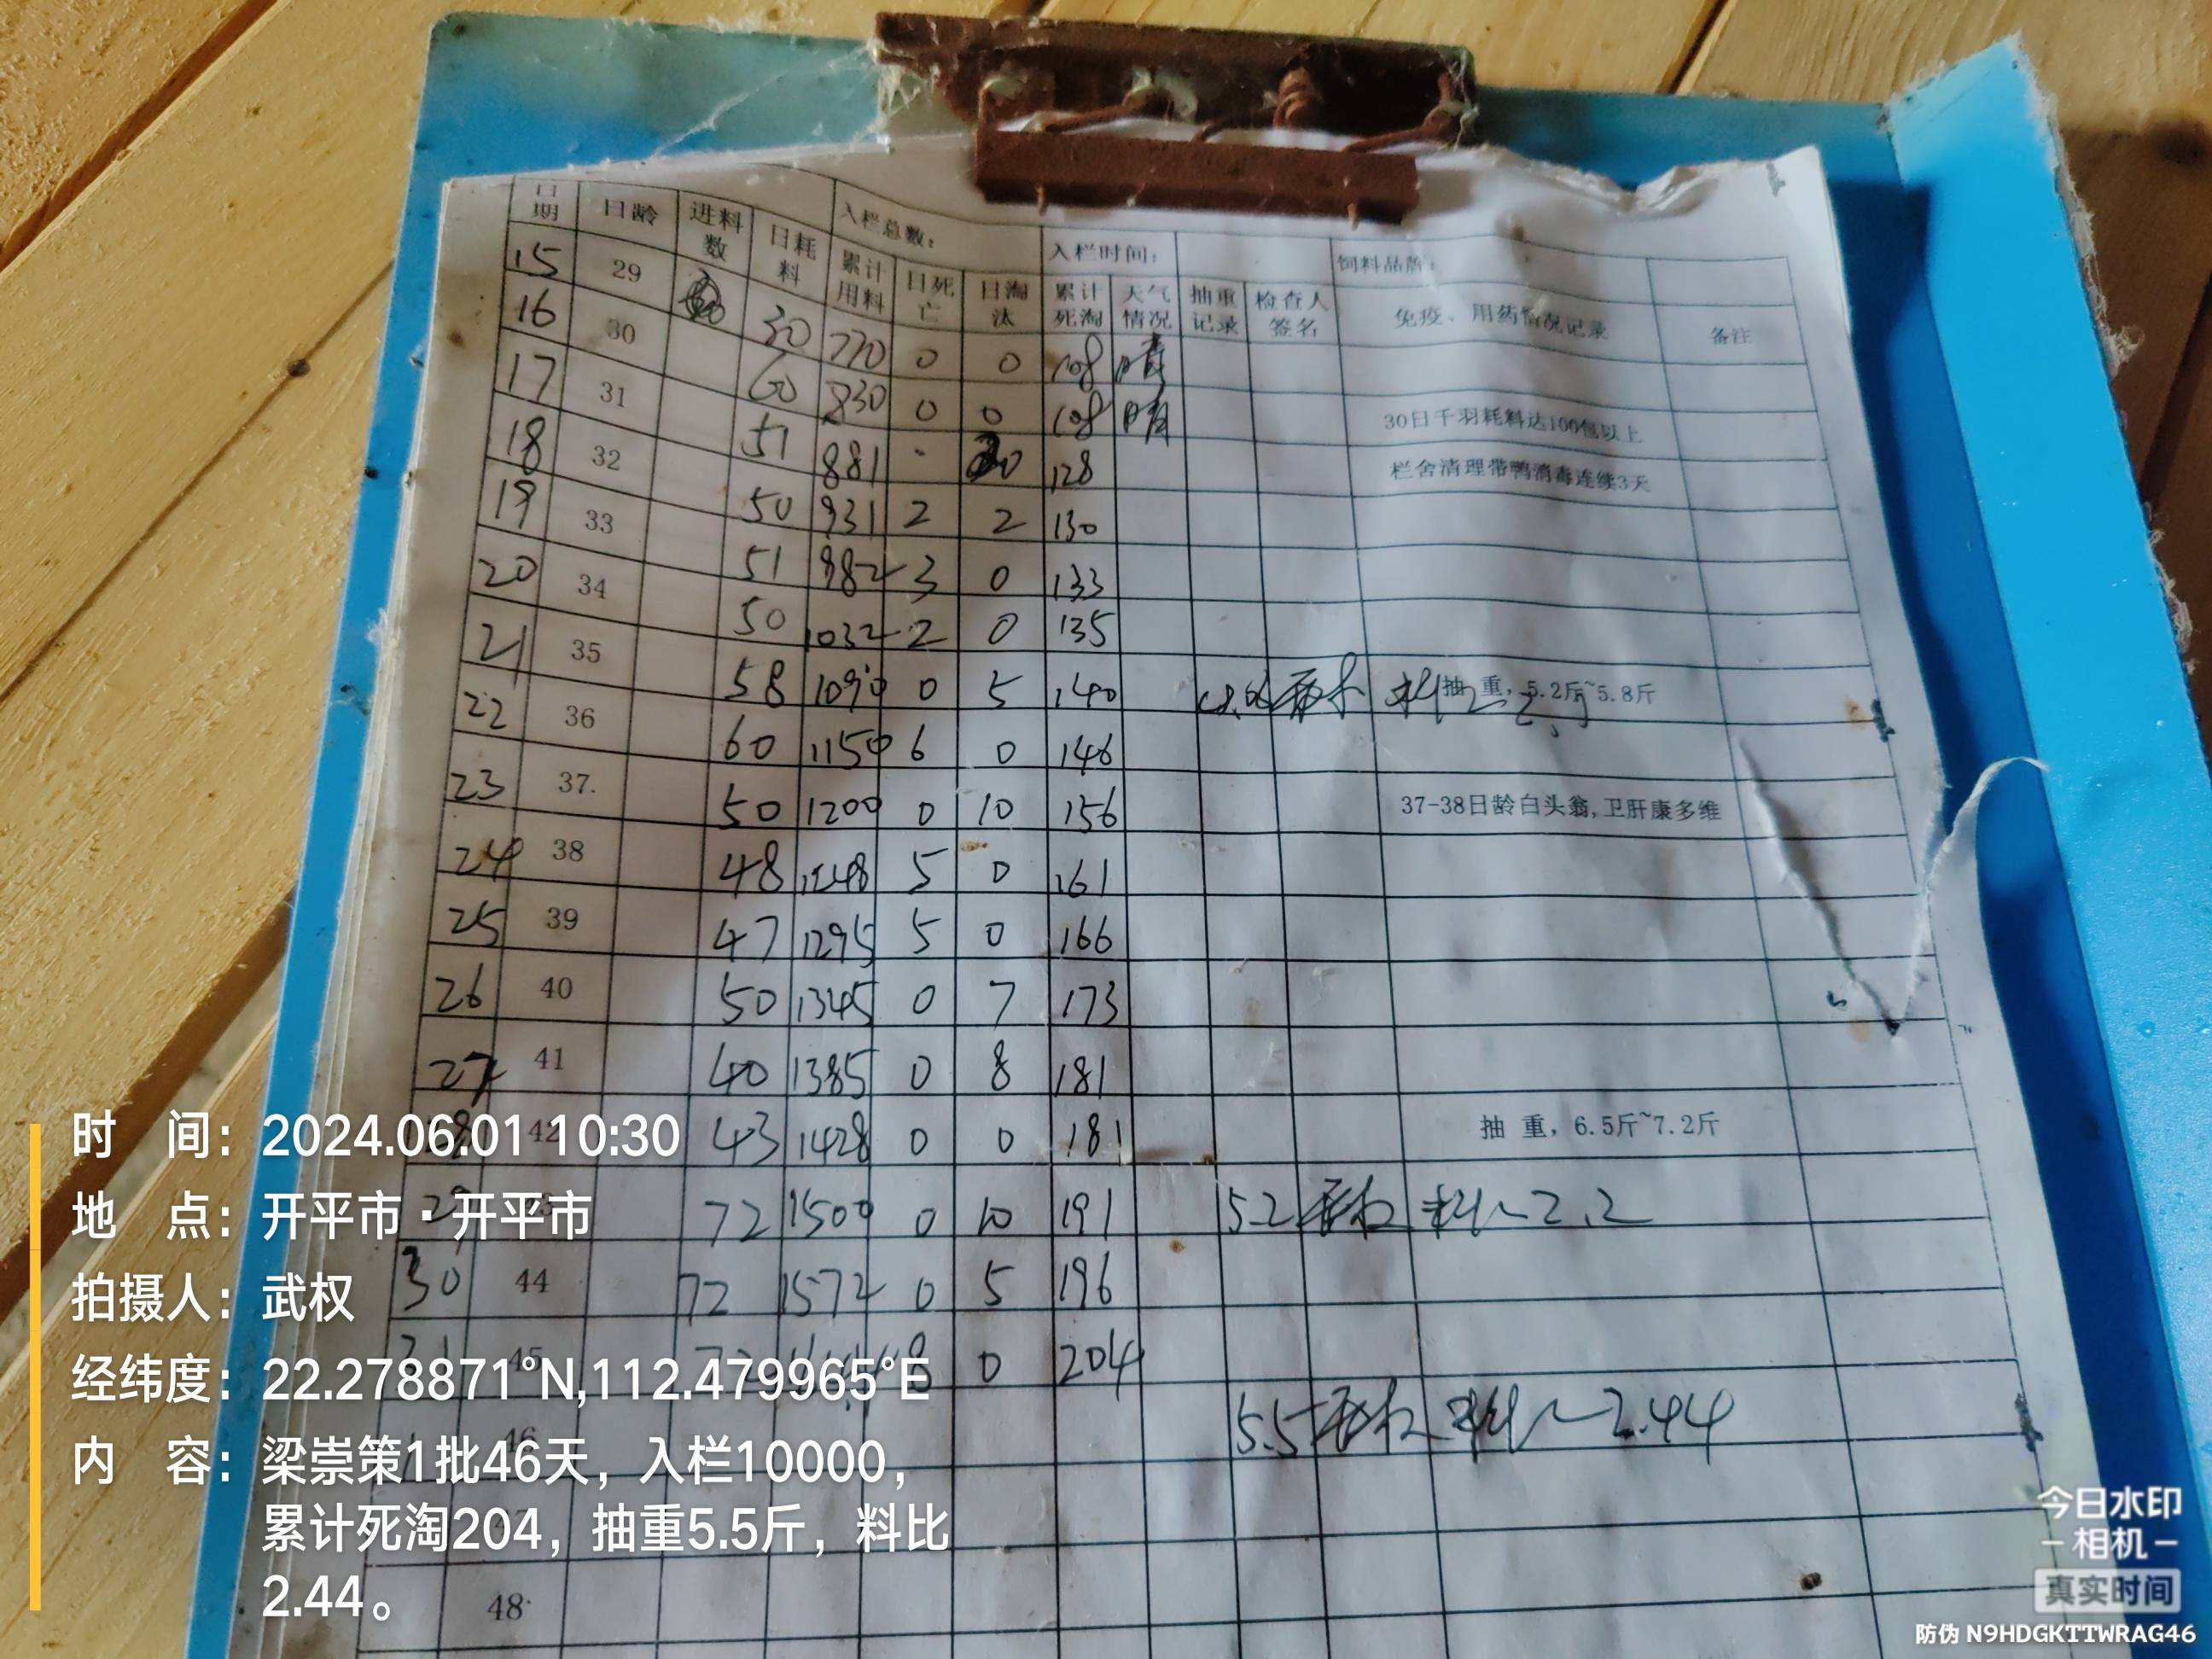 入栏总数：  入栏时间：  饲料品牌：
日期 日龄 进料数 日耗料 累计用料 日死亡 日淘汰 累计死淘 天气情况 抽重记录 检查人签名 免疫、用药情况记录 备注
15 29 30 770 0 0 108 晴
16 30 60 830 0 0 108 晴 30日千羽耗料达100包以上
17 31 51 881 128 栏舍清理带鸭消毒连续3天
18 32 50 931 2 2 130
19 33 51 982 3 0 133
20 34 50 1032 2 0 135
21 35 58 1090 0 5 140 抽 重，5.2斤~5.8斤
22 36 60 1150 6 0 146
23 37. 50 1200 0 10 156 37-38日龄白头翁，卫肝康多维
24 38 48 1248 5 0 161
25 39 47 1295 5 0 166
26 40 50 1345 0 7 173
27 41 40 1385 0 8 181
28 42 43 1428 0 0 181 抽 重，6.5斤~7.2斤
29 43 72 1500 0 10 191 5.2 2.2
30 44 72 1572 0 5 196
31 45 72 8 0 204
46 5.5 2.44
47
48
时 间：2024.06.01 10:30
地 点：开平市·开平市
拍摄人：武权
经纬度：22.278871°N,112.479965°E
内 容：梁崇策1批46天，入栏10000，
累计死淘204，抽重5.5斤，料比
2.44。
今日水印
相机
真实时间
防伪 N9HDGKTTWRAG46